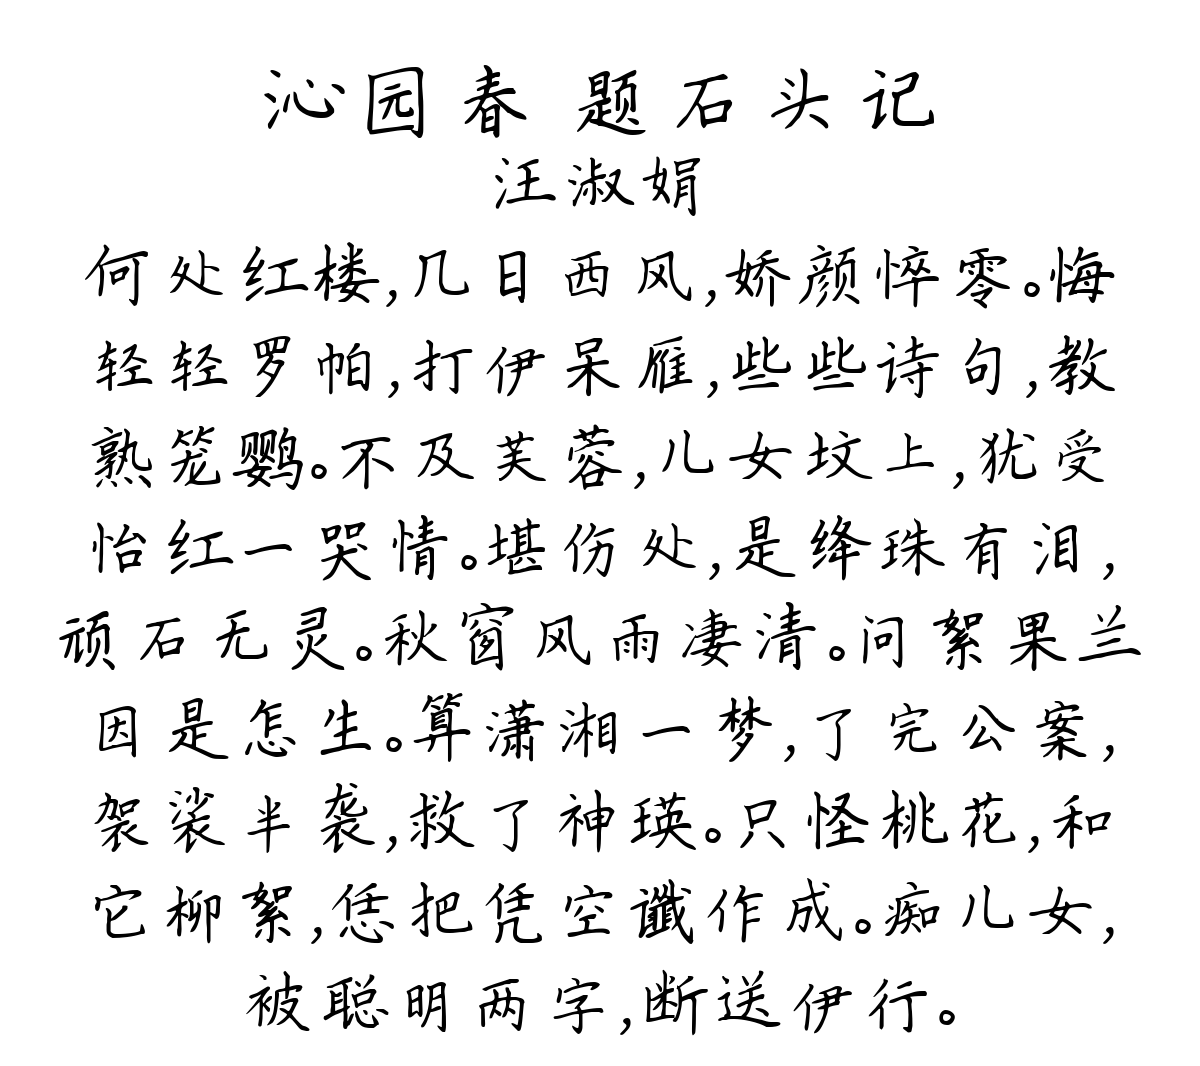 沁园春 题石头记
汪淑娟
何处红楼,几日西风,娇颜悴零。悔
轻轻罗帕,打伊呆雁,些些诗句,教
熟笼鹦。不及芙蓉,儿女坟上,犹受
怡红一哭情。堪伤处,是绛珠有泪,
顽石无灵。秋窗风雨凄清。问絮果兰
因是怎生。算潇湘一梦,了完公案,
袈裟半袭,救了神瑛。只怪桃花,和
它柳絮,恁把凭空谶作成。痴儿女,
被聪明两字,断送伊行。